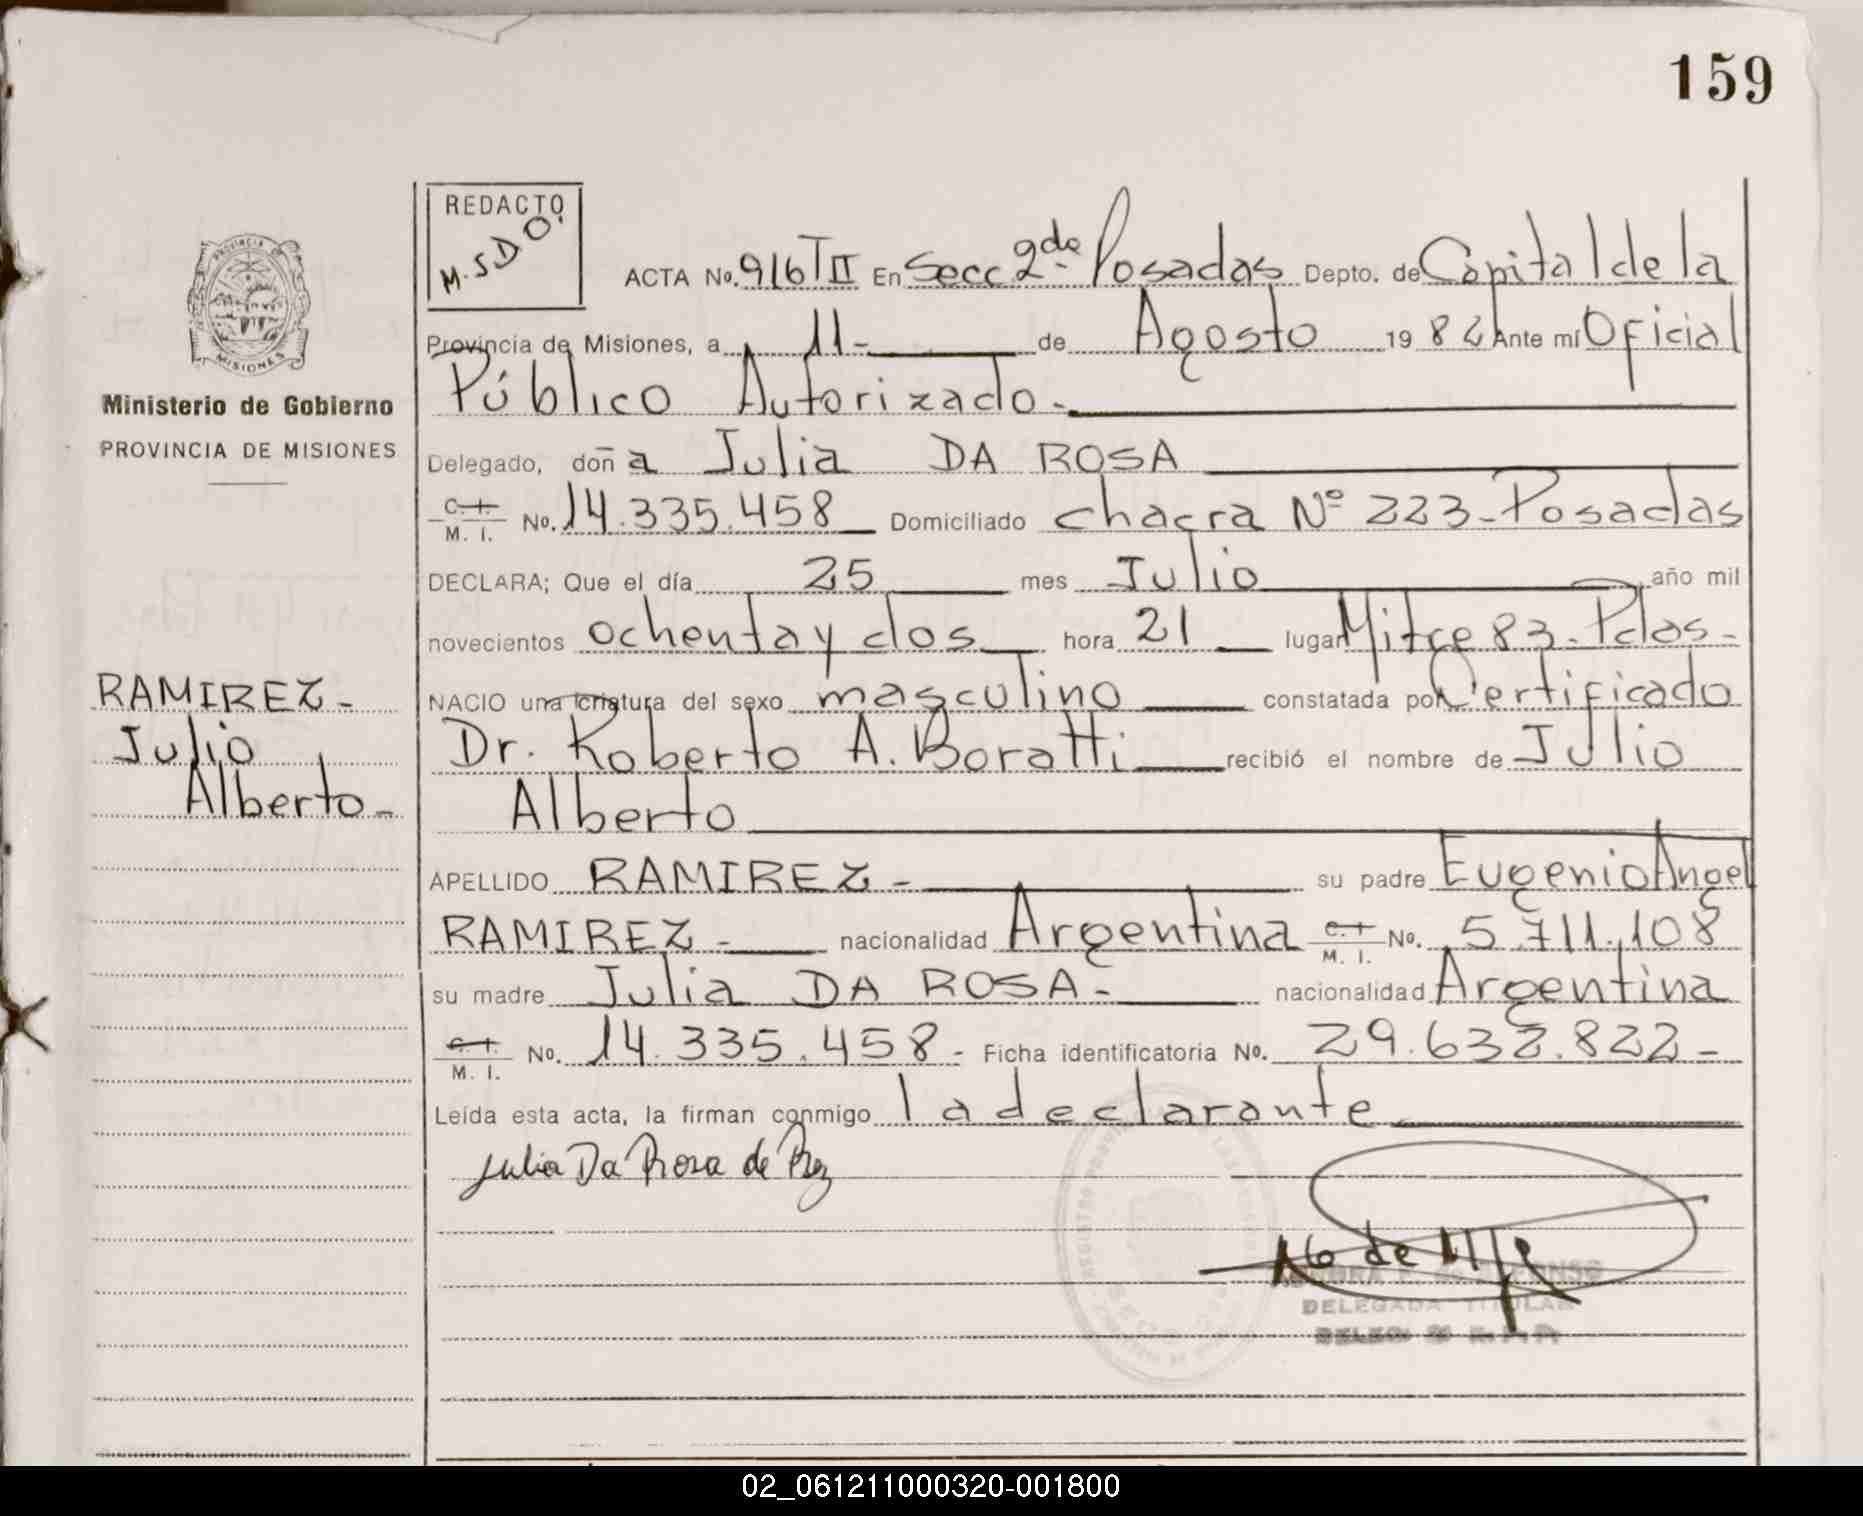 159
REDACTO
M.S.D.O.
ACTA No. 916 T II En Secc 2da. Posadas Depto. de Capital de la
Provincia de Misiones, a 11- de Agosto 1982 Ante mí Oficial
Público Autorizado-
Delegado, doña Julia DA ROSA
C. I.
M. I. No. 14.335.458 Domiciliado chacra Nº 223-Posadas
DECLARA; Que el día 25 mes Julio año mil
novecientos ochenta y dos hora 21 lugar Mitre 83-Pdas-
NACIO una criatura del sexo masculino constatada por Certificado
Dr. Roberto A. Boratti recibió el nombre de Julio
Alberto
APELLIDO RAMIREZ- su padre Eugenio Angel
RAMIREZ- nacionalidad Argentina C. I. M. I. No. 5.711.108
su madre Julia DA ROSA- nacionalidad Argentina
C. I.
M. I. No. 14.335.458- Ficha identificatoria No. 29.632.822-
Leída esta acta, la firman conmigo la declarante
Julia Da Rosa de Rez
DELEGADA TITULAR
PROVINCIA DE
MISIONES
Ministerio de Gobierno
PROVINCIA DE MISIONES
RAMIREZ-
Julio
Alberto-
02_061211000320-001800